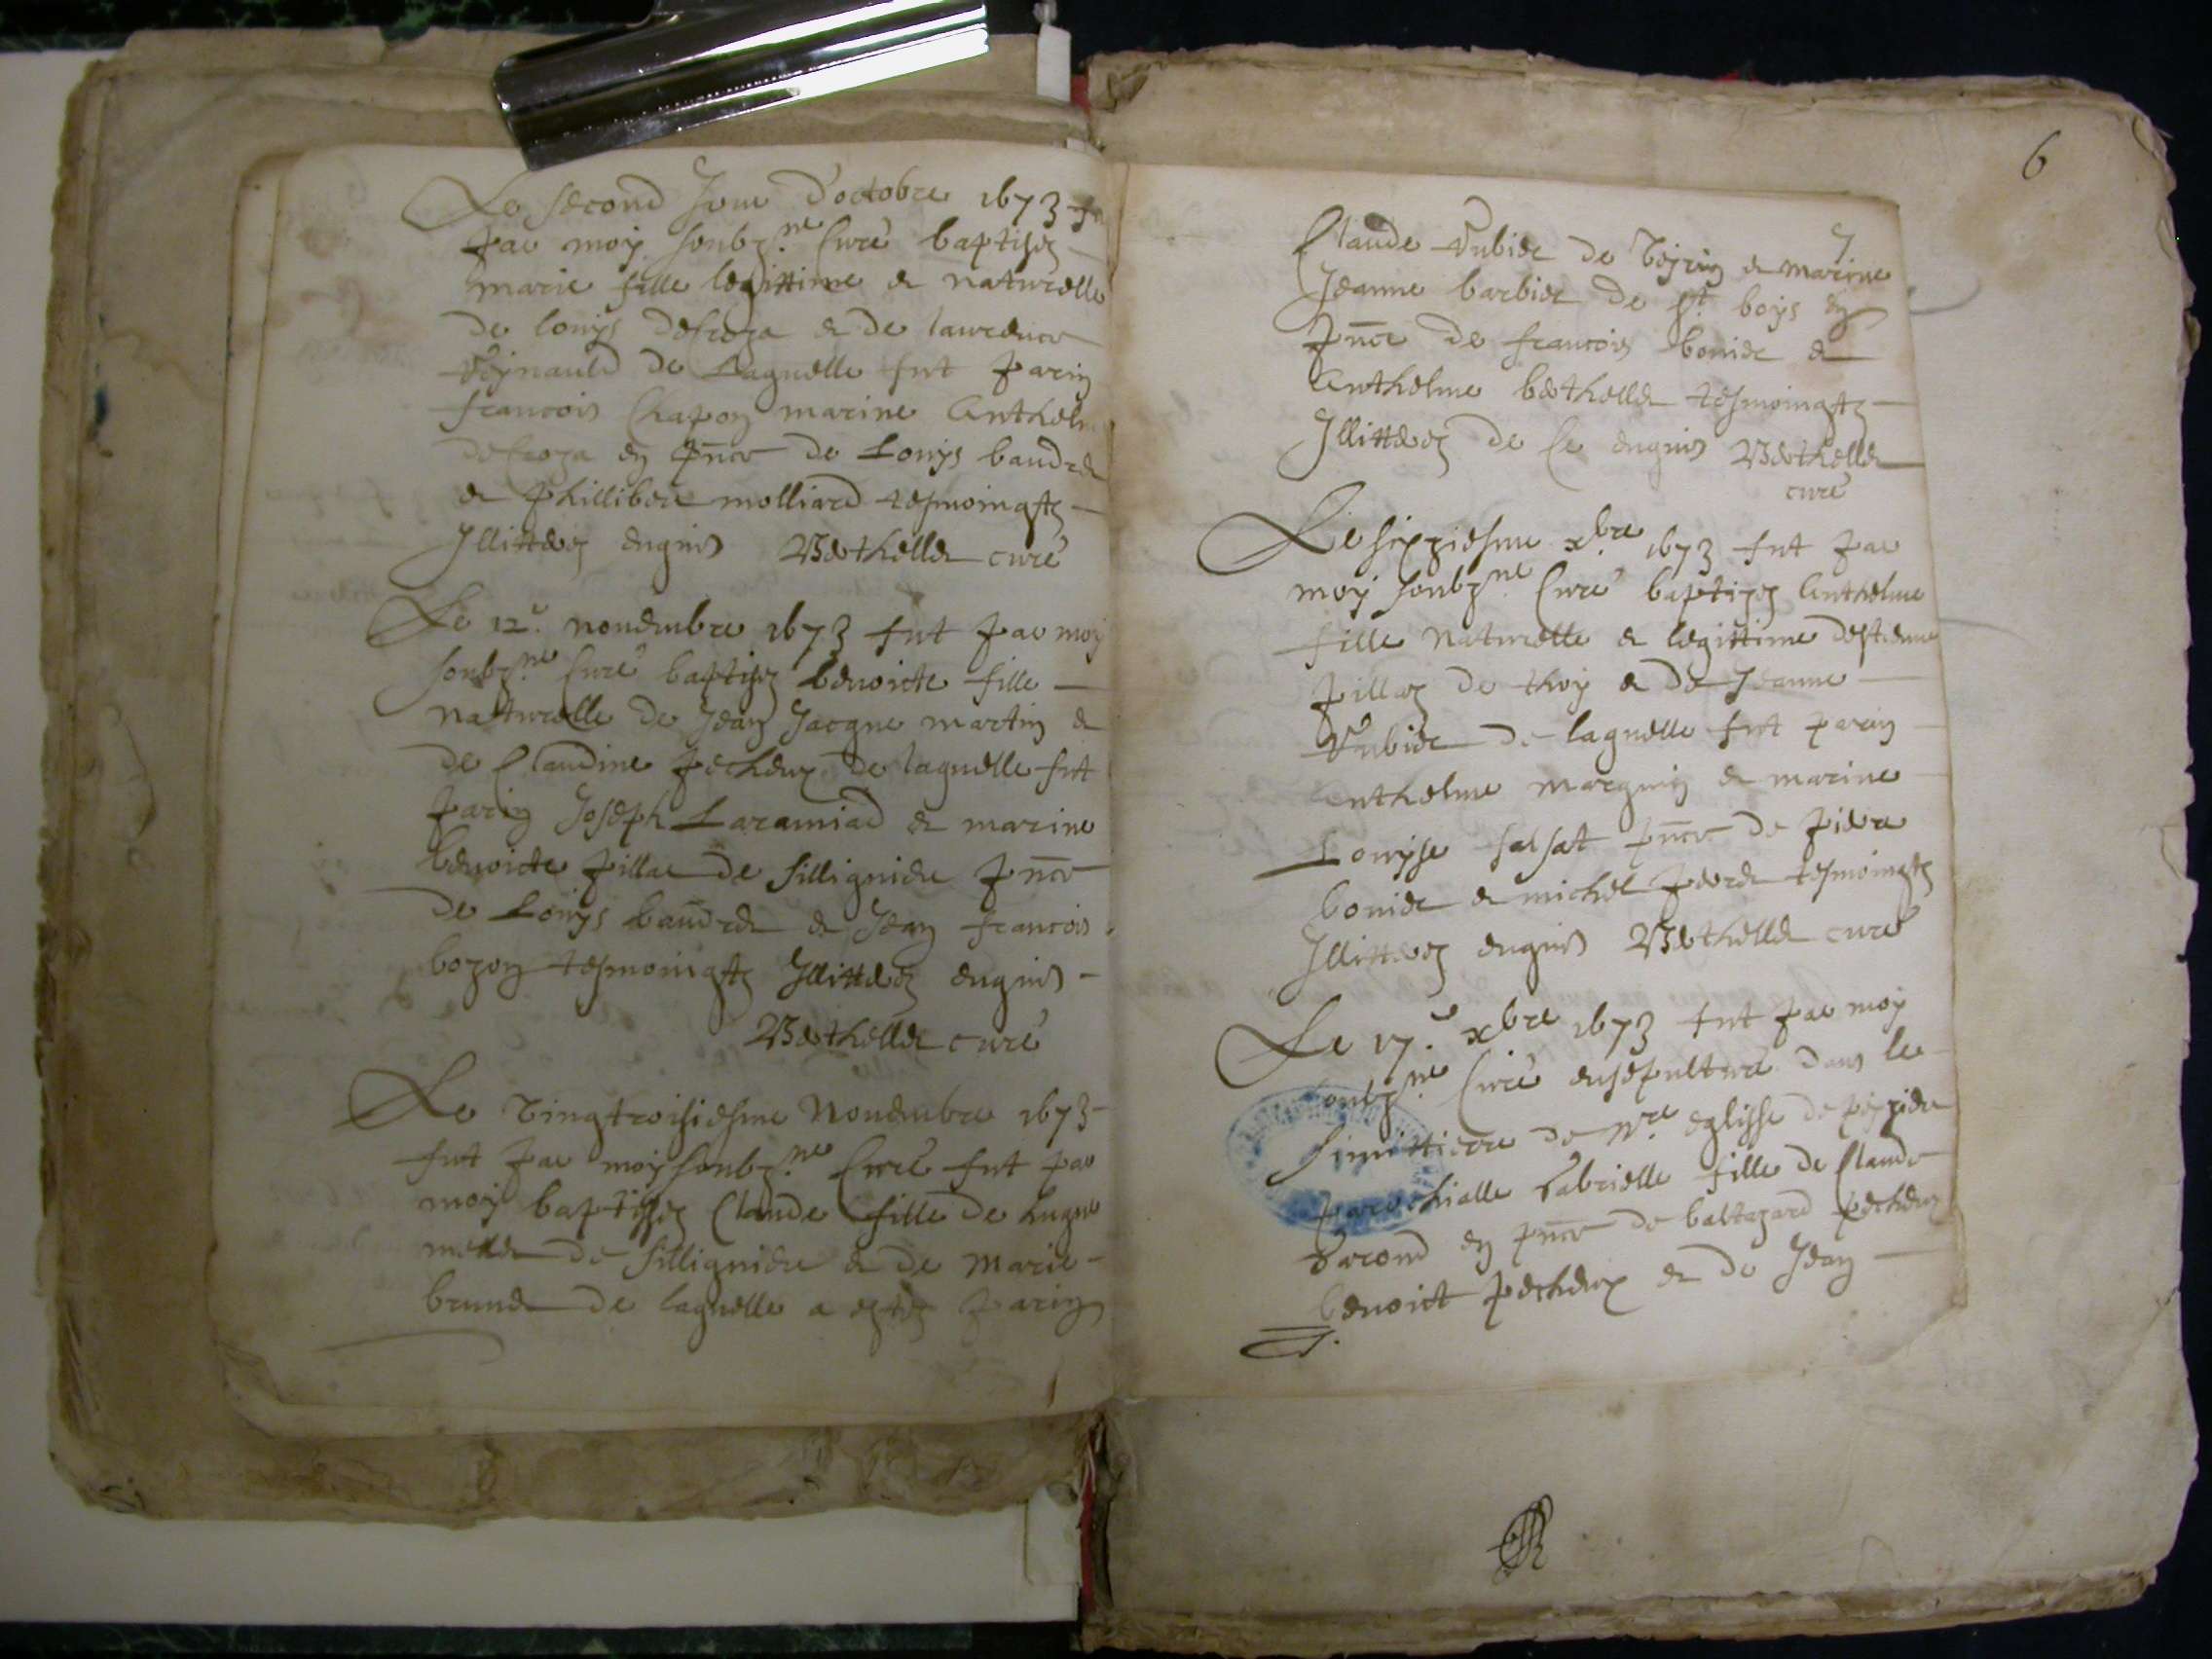 Le second Jour d'octobre 1673 fu
par moy soubz.ne Curé baptisez
marie fille legittime & naturelle
de louys defroza & de laurence
Reynauld de Laquelle fut parin
francois Chapoz marine Anthelm
defroza en pnce de Louys baudet
& phillibert molliard tesmoingtz
Illitterez enquis Berthellet curé
Le 12.e nouembre 1673 fut par moy
soubz.ne Curé baptisez benoicte fille
naturelle de Jean Jacque martin &
de Claudine pecheux de laquelle fut
parin Joseph & marine
benoicte pillar de Sillignieu pnce
de Louys baudet & Jean francois
bozon tesmoingtz Illitterez enquis
Berthellet curé
Le Vingtroisiesme Nouembre 1673
fut par moy soubz.ne Curé fut par
moy baptissez Claude fille de hugue
mellet de Sillignieu & de marie
brunet de laquelle a estez parin
6
7
Claude de Veyrin & marine
Jeanne barbier de St. boys en
pnce de francois bonier &
Anthelme berthellet tesmoingtz
Illitterez de Ce enquis Berthellet
curé
Le sixziesme xbre 1673 fut par
moy soubz.ne Curé baptizez Anthelme
fille naturelle & legittime destienne
pillaz de thoy & de Jeanne
de laquelle fut parin
Anthelme marquin & marine
Louyse salsat pnce de pierre
bonier & michel tesmoingtz
Illitterez enquis Berthellet curé
Le 17.e xbre 1673 fut par moy
soubz.ne Curé ensepulturé dans le
Simittierre de nre eglisse de peyzieu
parochialle Gabrielle fille de Claude
Garond en pnce de baltazard pecheux
benoict pecheux & de Jean